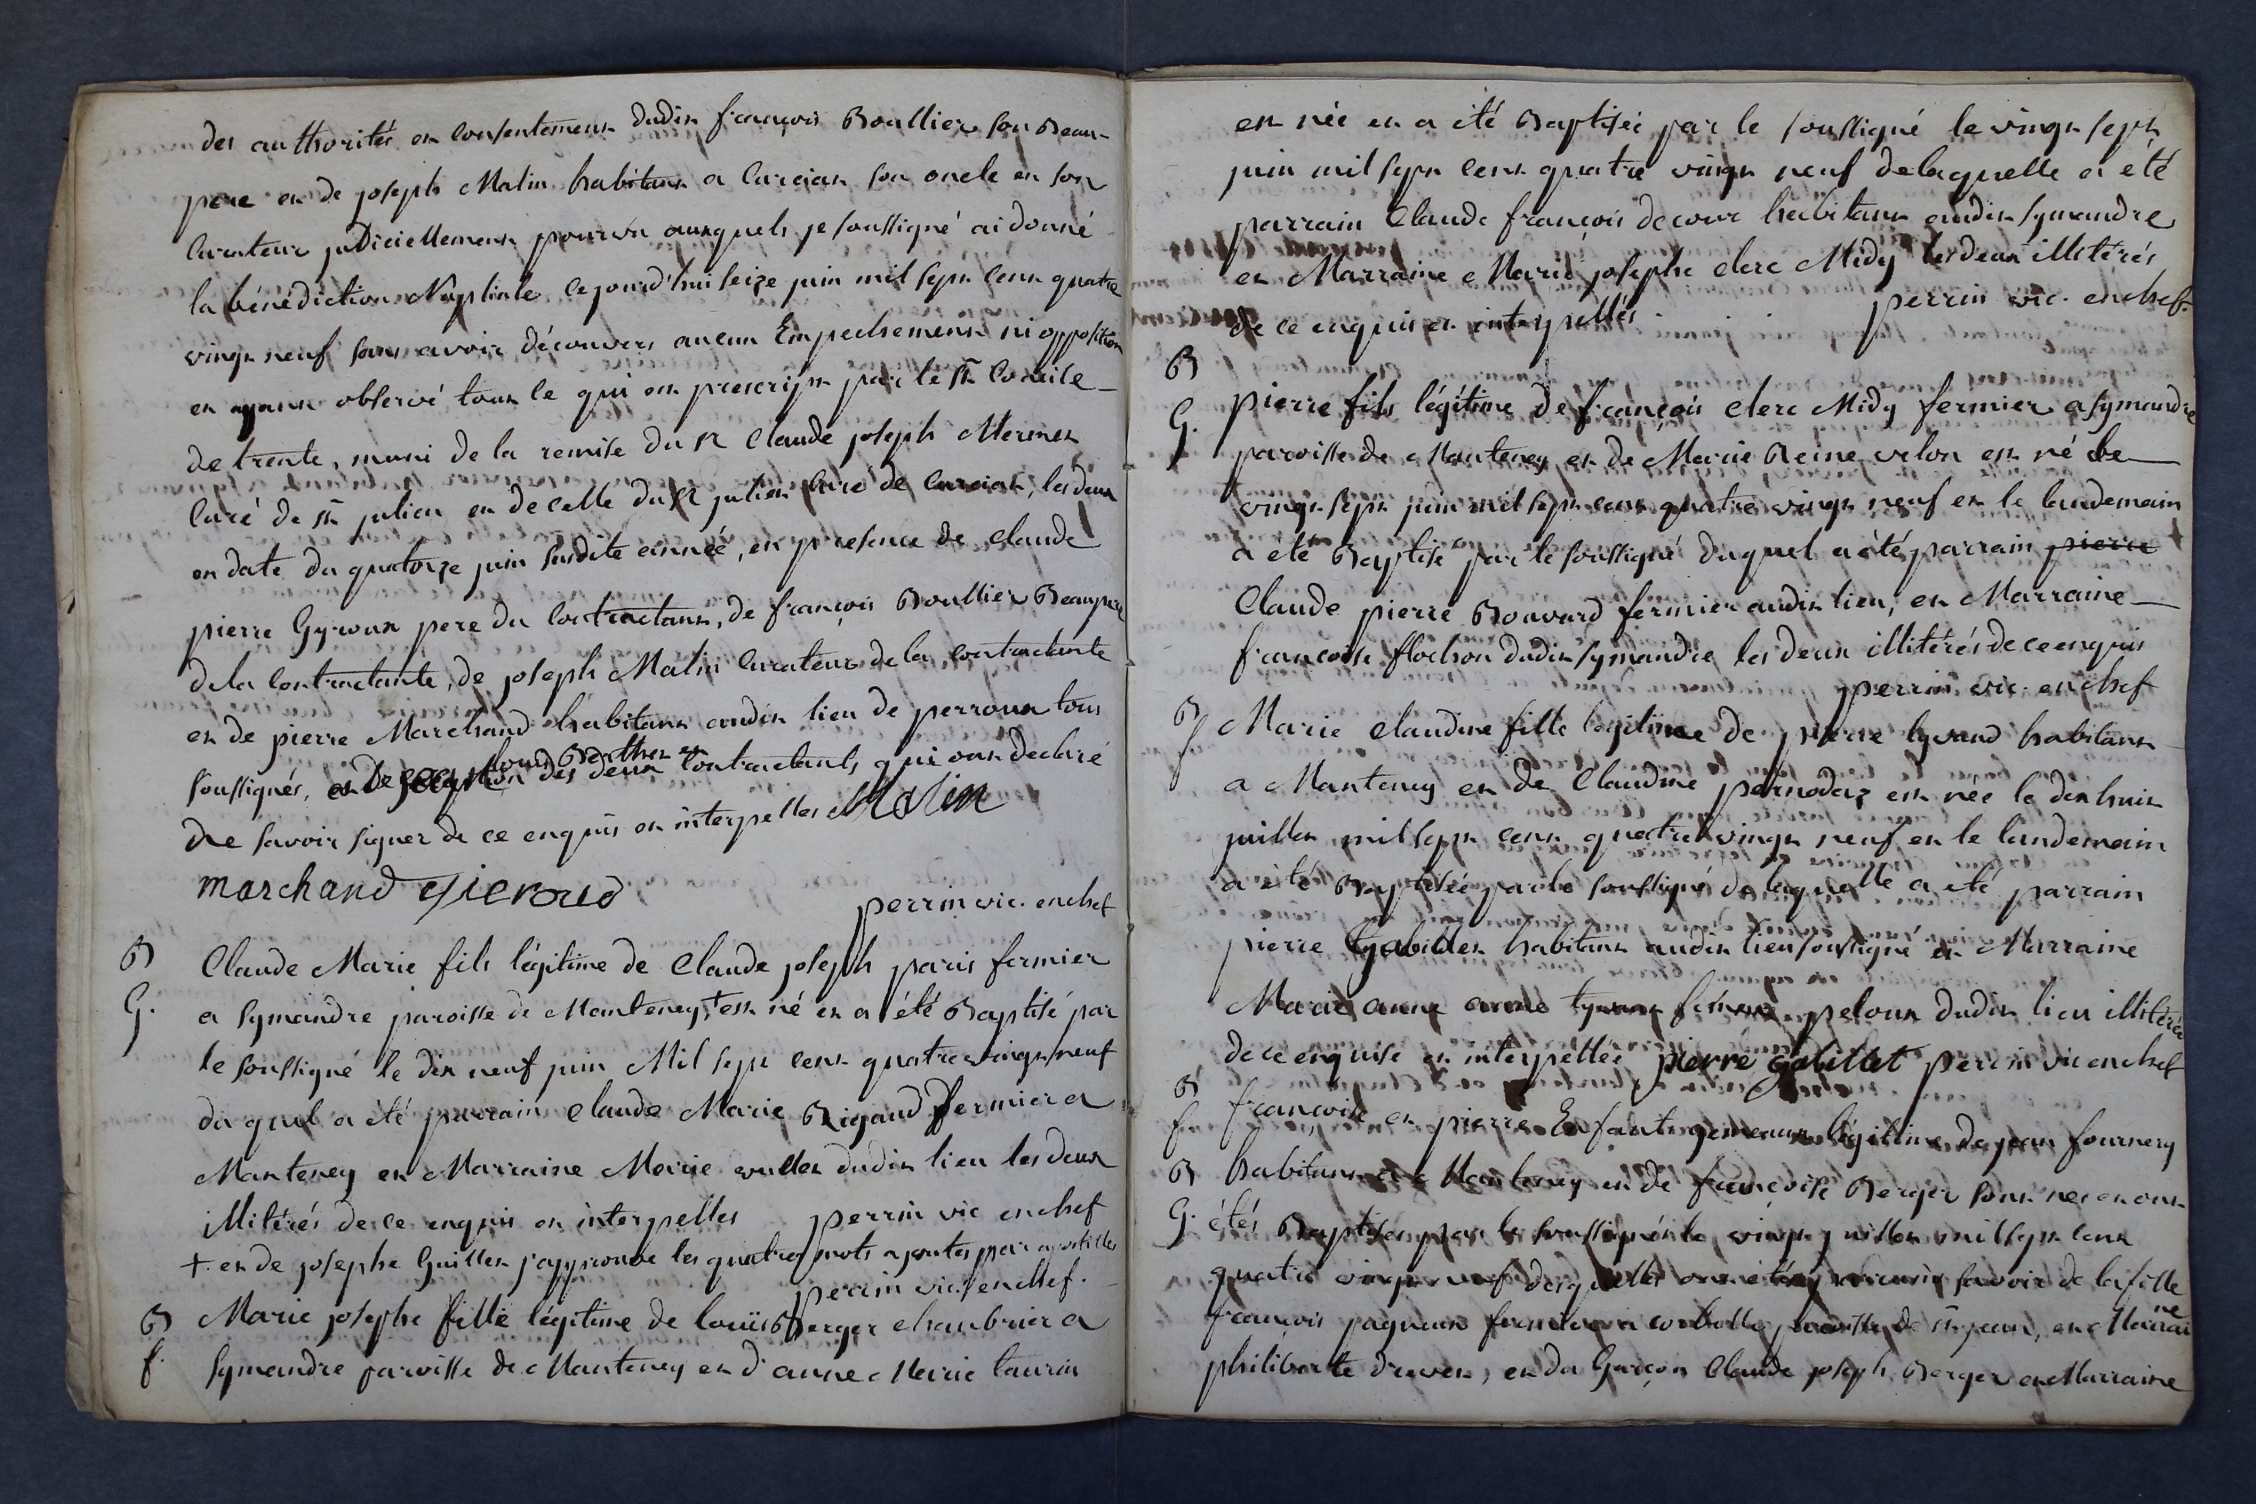 des authorités et consentement dudit françois Boullier son Beau-
pere et de joseph Matin habitant a Curciat son oncle et son
Curateur judiciellement pourvu auxquels je soussigné ai donné
la bénédiction Nuptiale cejourd'hui seize juin mil sept cent quatre
vingt neuf sans avoir découvert aucun Empechement ni opposition
et ayant observé tout ce qui est prescript par le st Concile
de trente, muni de la remise du sr Claude joseph Mermet
Curé de st julien et de celle du sr julien Curé de Curciat, les deux
en date du quatorze juin susdite année, en presence de claude
pierre Gyroux pere du Contractant, de françois Boullier Beaupere
de la Contractante, de joseph Matin Curateur de la contractante
et de pierre Marchand habitant audit lieu de perroux tous
soussignés, des deux contractants qui ont declaré
ne savoir signer de ce enquis et interpelles Matin
marchand Gieroud
perrin vic. en chef
B Claude Marie fils légitime de Claude joseph paris fermier
G. a symandre paroisse de Manteney + est né et a été Baptisé par
le soussigné le dix neuf juin Mil sept cent quatre vingt neuf
du quel a été parrain claude Marie Rigaud fermier a
Manteney et Marraine Marie vullet dudit lieu les deux
illitérés de ce enquis et interpelles perrin vic en chef
+ et de josephe Guillet j'approuve les quatre mots ajoutés par apostilles
perrin vic. en chef.
B Marie josephe fille légitime de louïs Berger chambrier a
f. symandre paroisse de Manteney et d'anne Marie taurin
est née et a été Baptisée par le soussigné le vingt sept
juin mil sept cent quatre vingt neuf de laquelle a été
parrain Claude françois decour habitant audit symandre
et Marraine Marie josephe clerc Midy les deux illitérés
de ce enquis et interpellés perrin vic. en chef.
B
G. pierre fils légitime de françois clerc Midy fermier a symandre
paroisse de Manteney et de Marie Reine velon est né le
vingt sept juin mil sept cent quatre vingt neuf et le landemain
a été Baptisé par le soussigné duquel a été parrain pierre
Claude pierre Bouvard fermier audit lieu, et Marraine
françoise flochon dudit symandre les deux illitérés de ce enquis
perrin vic. en chef
B
f Marie claudine fille legitime de pierre tyvand habitant
a Manteney et de Claudine pernodaz est née le dix huit
juillet mil sept cent quatre vingt neuf et le landemain
a été Baptisée par le soussigné de laquelle a été parrain
pierre Gabillet habitant audit lieu soussigné et Marraine
Marie anne femme peloux dudit lieu illitérée
de ce enquise et interpellée pierre gabillet perrin vic en chef
B
f françoise et pierre Enfants gemeaux légitime de jean fournery
B habitant a Manteney et de françoise Berger sont nés et ont
G. étés Baptisés par le soussigné le vingt juillet mil sept cent
quatre vingt neuf desquelles ont été parrain savoir de la fille
françois paroisse de st jean, et Marraine
philiberte druvet, et du Garçon Claude joseph Berger et Marraine